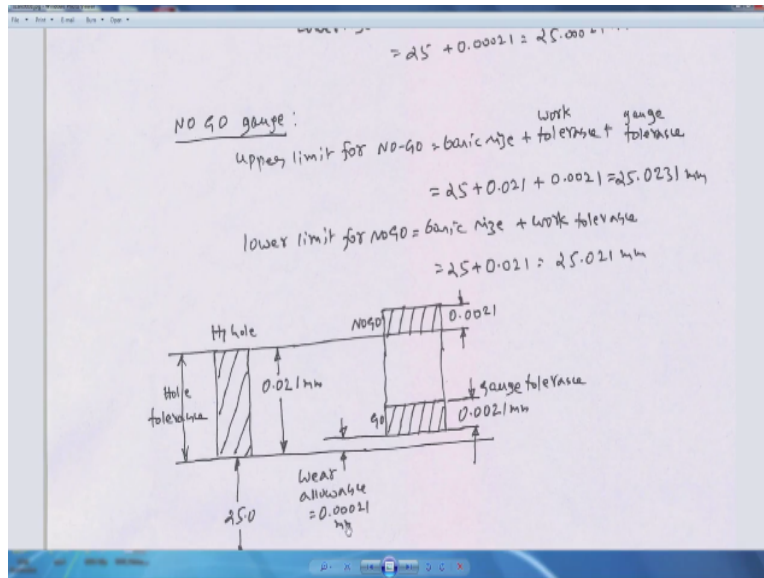 File Print E-mail Burn Open
= 25 + 0.00021 = 25.00021
NO GO gauge:
upper limit for NO-GO = basic size + work tolerance + gauge tolerance
= 25 + 0.021 + 0.0021 = 25.0231 mm
lower limit for NOGO = basic size + work tolerance
= 25 + 0.021 = 25.021 mm
H7 hole
NOGO
0.0021
Hole
tolerance
0.021 mm
gauge tolerance
GO
0.0021 mm
Wear
allowance
= 0.00021
mm
25.0